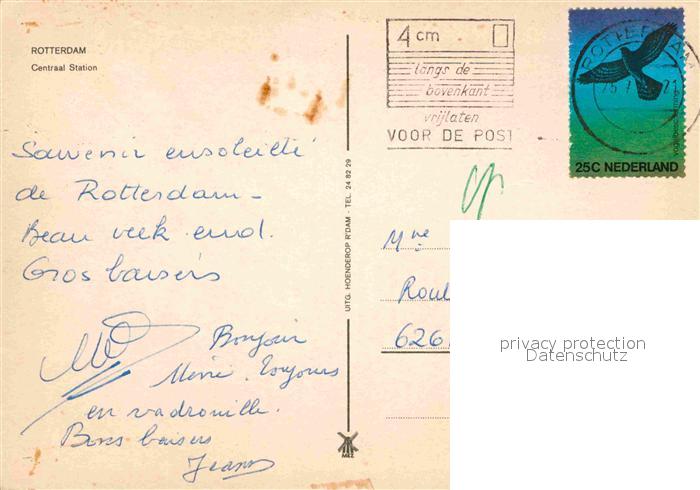 ROTTERDAM
Centraal Station
4 cm
langs de
bovenkant
vrijlaten
VOOR DE POST
ROTTERDAM
25C NEDERLAND
Souvenir ensoleillé
de Rotterdam -
Beau week-end.
Gros baisers
Bonjour
Mémé. Toujours
en vadrouille.
Bons baisers
Jeann
UITG. HOENDEROP R'DAM - TEL. 24 82 29
MEZ
Mme
Roul
6261
privacy protection
Datenschutz